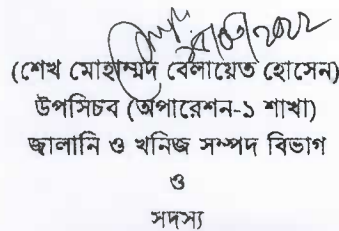 (শেখ মোহাম্মদ বেলায়েত হোসেন)
উপসিচব (অপারেশন-১ শাখা)
জ্বালানি ও খনিজ সম্পদ বিভাগ
ও
সদস্য